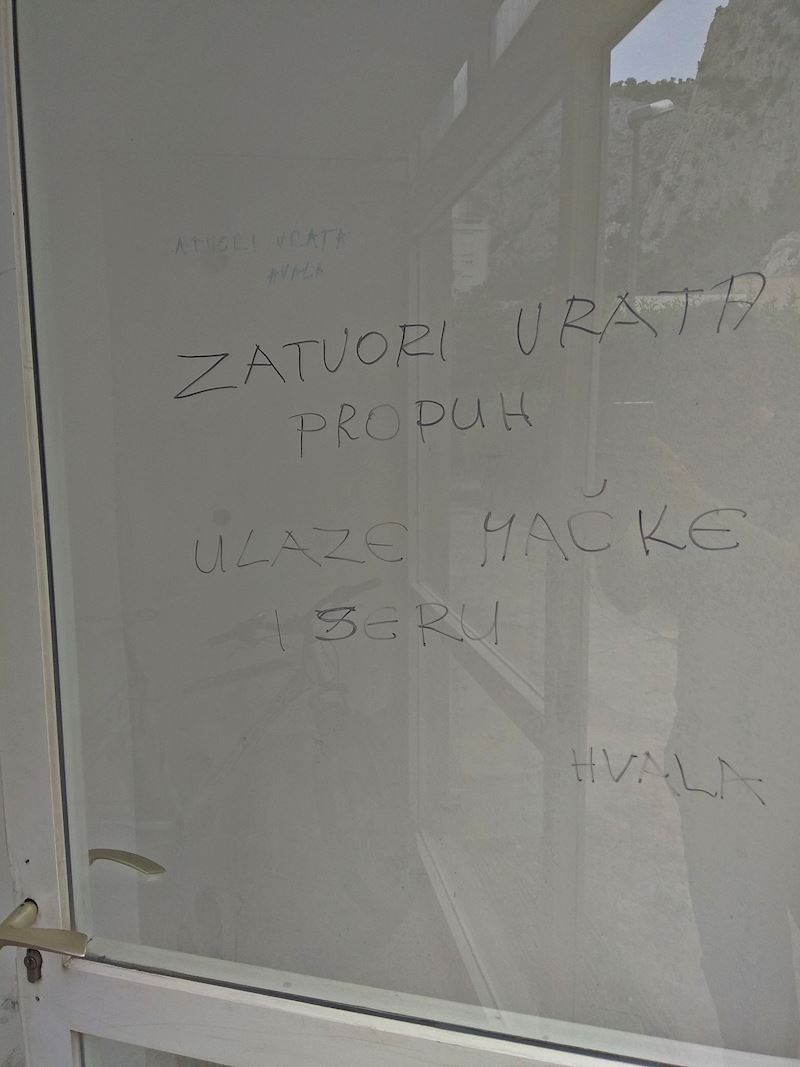 ZATVORI VRATA
HVALA
ZATVORI VRATA
PROPUH
ULAZE MAČKE
I SERU
HVALA